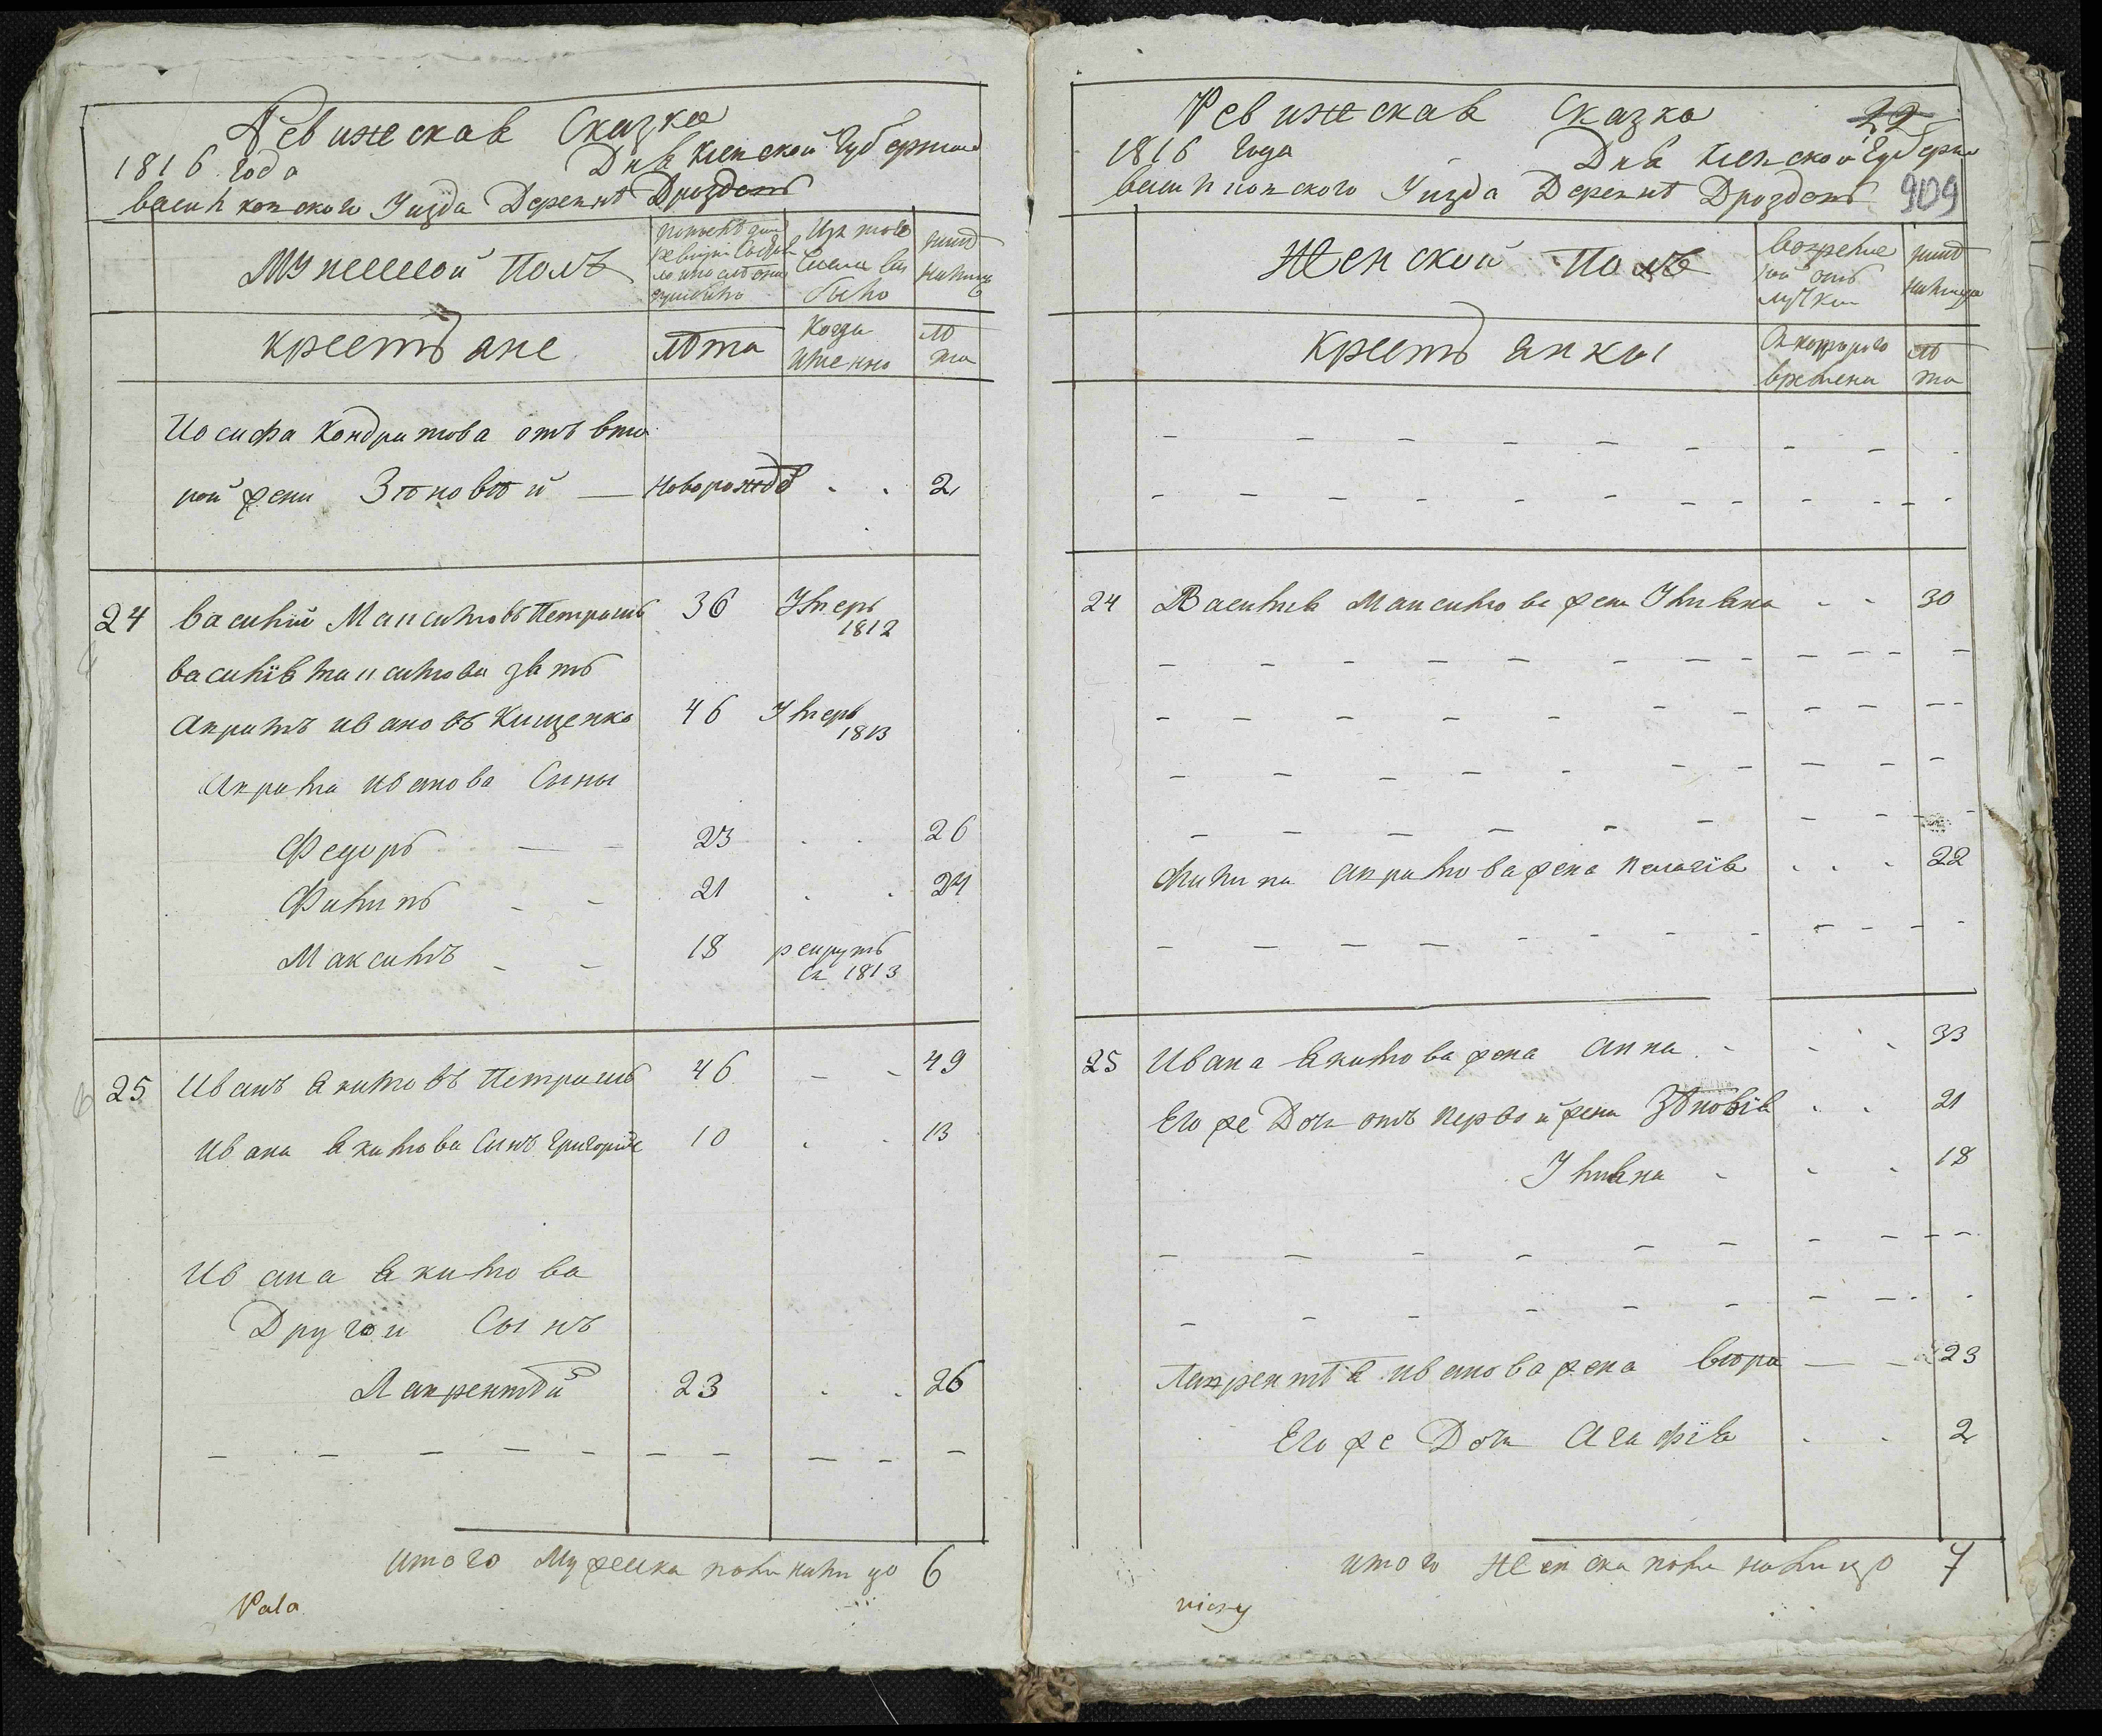 Ревижская Сказка
1816 года Дня Кіевской Губерніи
Василковского Уизда Деревнѣ Дроздовъ
Мужеской Полъ
Изъ того числа выбыло
нынѣ налицо
крестьяне
лѣта
Когда имено
лѣта
Иосифа Кондратова отъ вто
рой жены Зѣновѣй — новорожд . . 2
24 Василій Максимовъ Петрашъ 36 Умеръ 1812
Василія Максимова зять
Аврамъ Ивановъ Кищенко 46 Умеръ 1813
Аврама Иванова Сыны
Федоръ 23 . . 26
Филипъ 21 . . 24
Максимъ 18 рекрутъ в 1813
25 Иванъ Якимовъ Петрашъ 46 49
Ивана Якимова Сынъ Григорий 10 . . 13
Ивана Якимова
Другой Сынъ
Лаврентѣй 23 . . 26
итого мужеска пола налицо 6
Pala
Ревижская Сказка 22
1816 Года Дня Кіевской Губерни
Василковского Уизда Деревнѣ Дроздовъ 909
Женской Полъ
Во временной отлучки
нынѣ налицо
крестьянки
Съ которого времени
лѣта
24 Василія Максимова жена Улияна 30
Филипа Аврамова жена Пелагія . . . 22
25 Ивана Якимова жена Анна . . . 33
Его же Дочь отъ первой жены Зѣновія . . 21
Улияна . . . 18
Лаврентѣя Иванова жена Вѣра 23
Его же Дочь Агафія . . 2
итого женска пола налицо 7